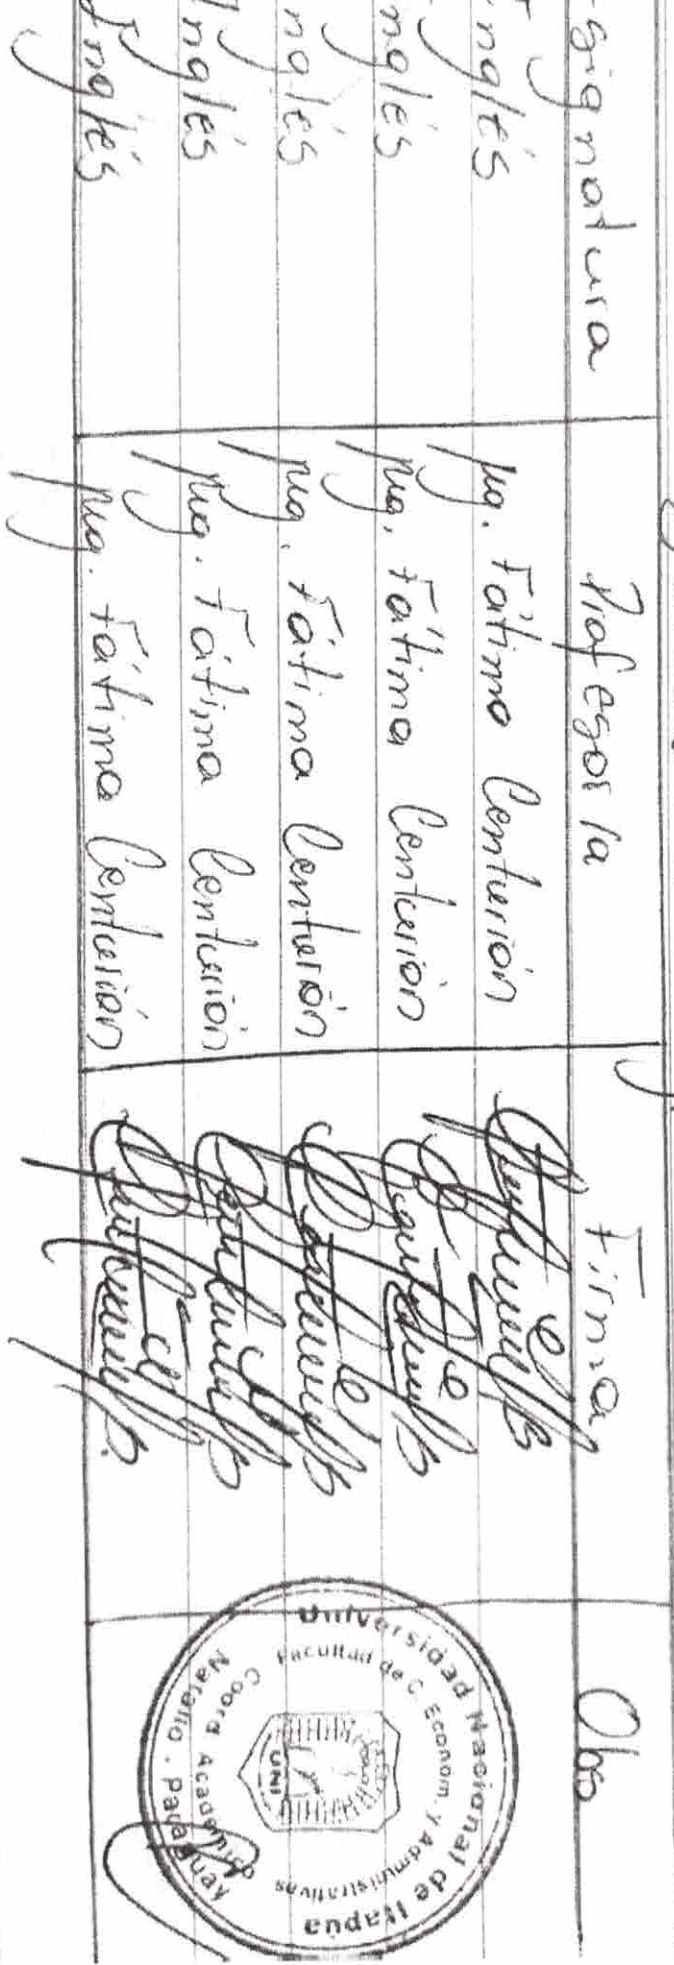 signatura Profesor/a Firma Obs
Inglés Mg. Fátima Centurión
Inglés Mg. Fátima Centurión
Inglés Mg. Fátima Centurión
Inglés Mg. Fátima Centurión
Inglés Mg. Fátima Centurión
Universidad Nacional de Itapúa
Facultad de C. Econom. y Administrativas
Coord. Académico
Natalio - Paraguay
UNI